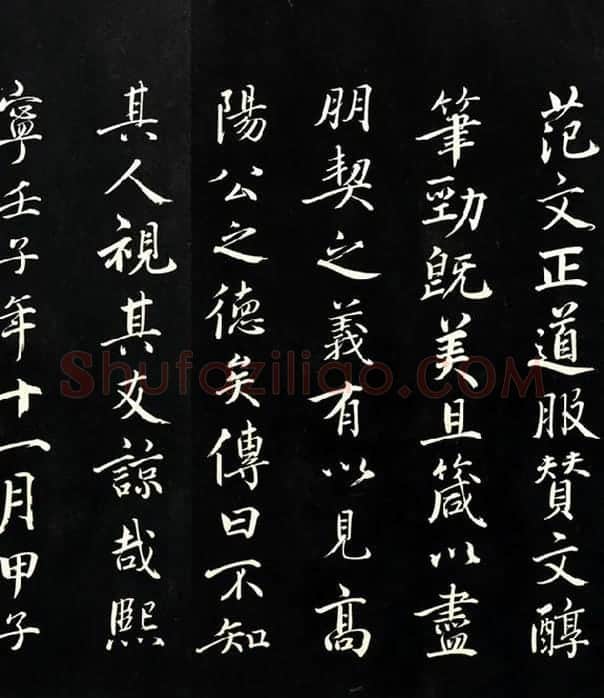 范文正道服贊文醇
筆勁既美且箴以盡
朋契之義有以見高
陽公之德矣傳曰不知
其人視其友諒哉熙
寧壬子年十一月甲子
Shufaziliao.COM